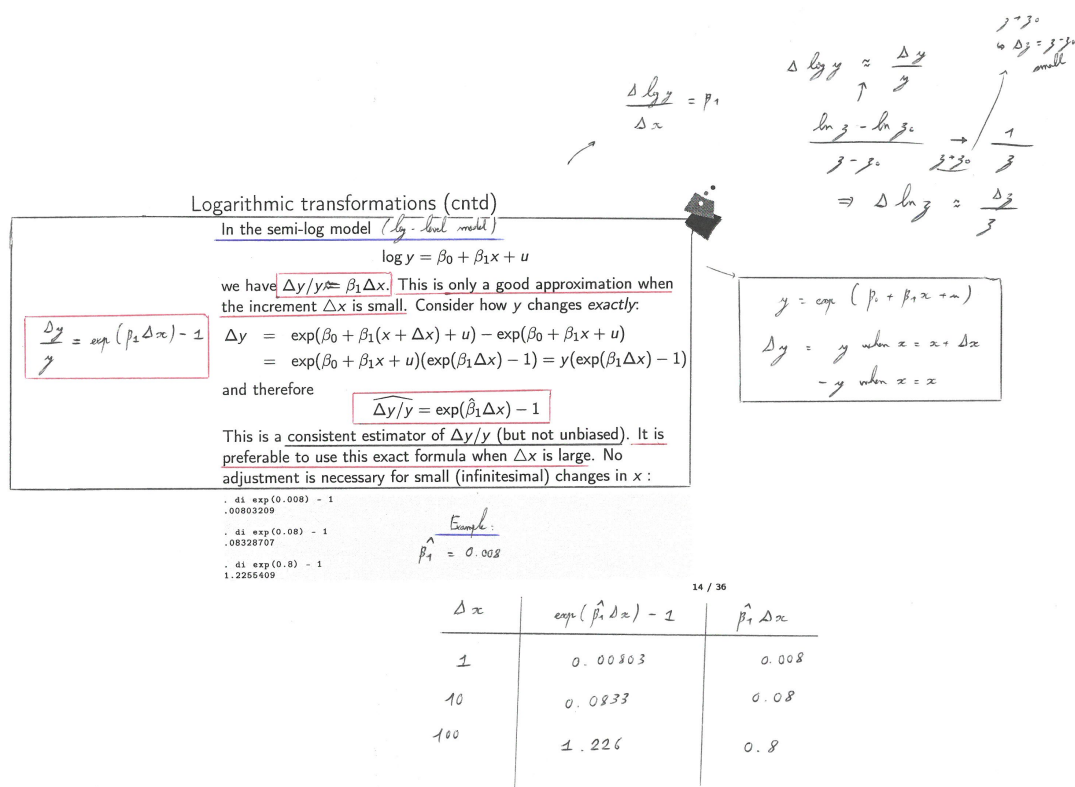 z → z₀
↳ Δz = z-z₀
small
Δ log y ≈ Δy / y
↑
(ln z - ln z₀) / (z - z₀) → (z→z₀) 1 / z
⇒ Δ ln z ≈ Δz / z
Δ log y / Δx = β₁
Logarithmic transformations (cntd)
In the semi-log model (log-level model)
log y = β₀ + β₁x + u
we have Δy/y ≈ β₁Δx. This is only a good approximation when
the increment △x is small. Consider how y changes exactly:
Δy = exp(β₀ + β₁(x + Δx) + u) − exp(β₀ + β₁x + u)
= exp(β₀ + β₁x + u)(exp(β₁Δx) − 1) = y(exp(β₁Δx) − 1)
and therefore
\widehat{Δy/y} = exp(β̂₁Δx) − 1
This is a consistent estimator of Δy/y (but not unbiased). It is
preferable to use this exact formula when △x is large. No
adjustment is necessary for small (infinitesimal) changes in x :
Δy / y = exp(β₁Δx) - 1
y = exp (β₀ + β₁x + u)
Δy = y when x = x + Δx
- y when x = x
. di exp(0.008) - 1
.00803209
. di exp(0.08) - 1
.08328707
. di exp(0.8) - 1
1.2255409
Example:
β̂₁ = 0.008
14 / 36
Δx exp(β̂₁Δx) - 1 β̂₁Δx
1 0.00803 0.008
10 0.0833 0.08
100 1.226 0.8